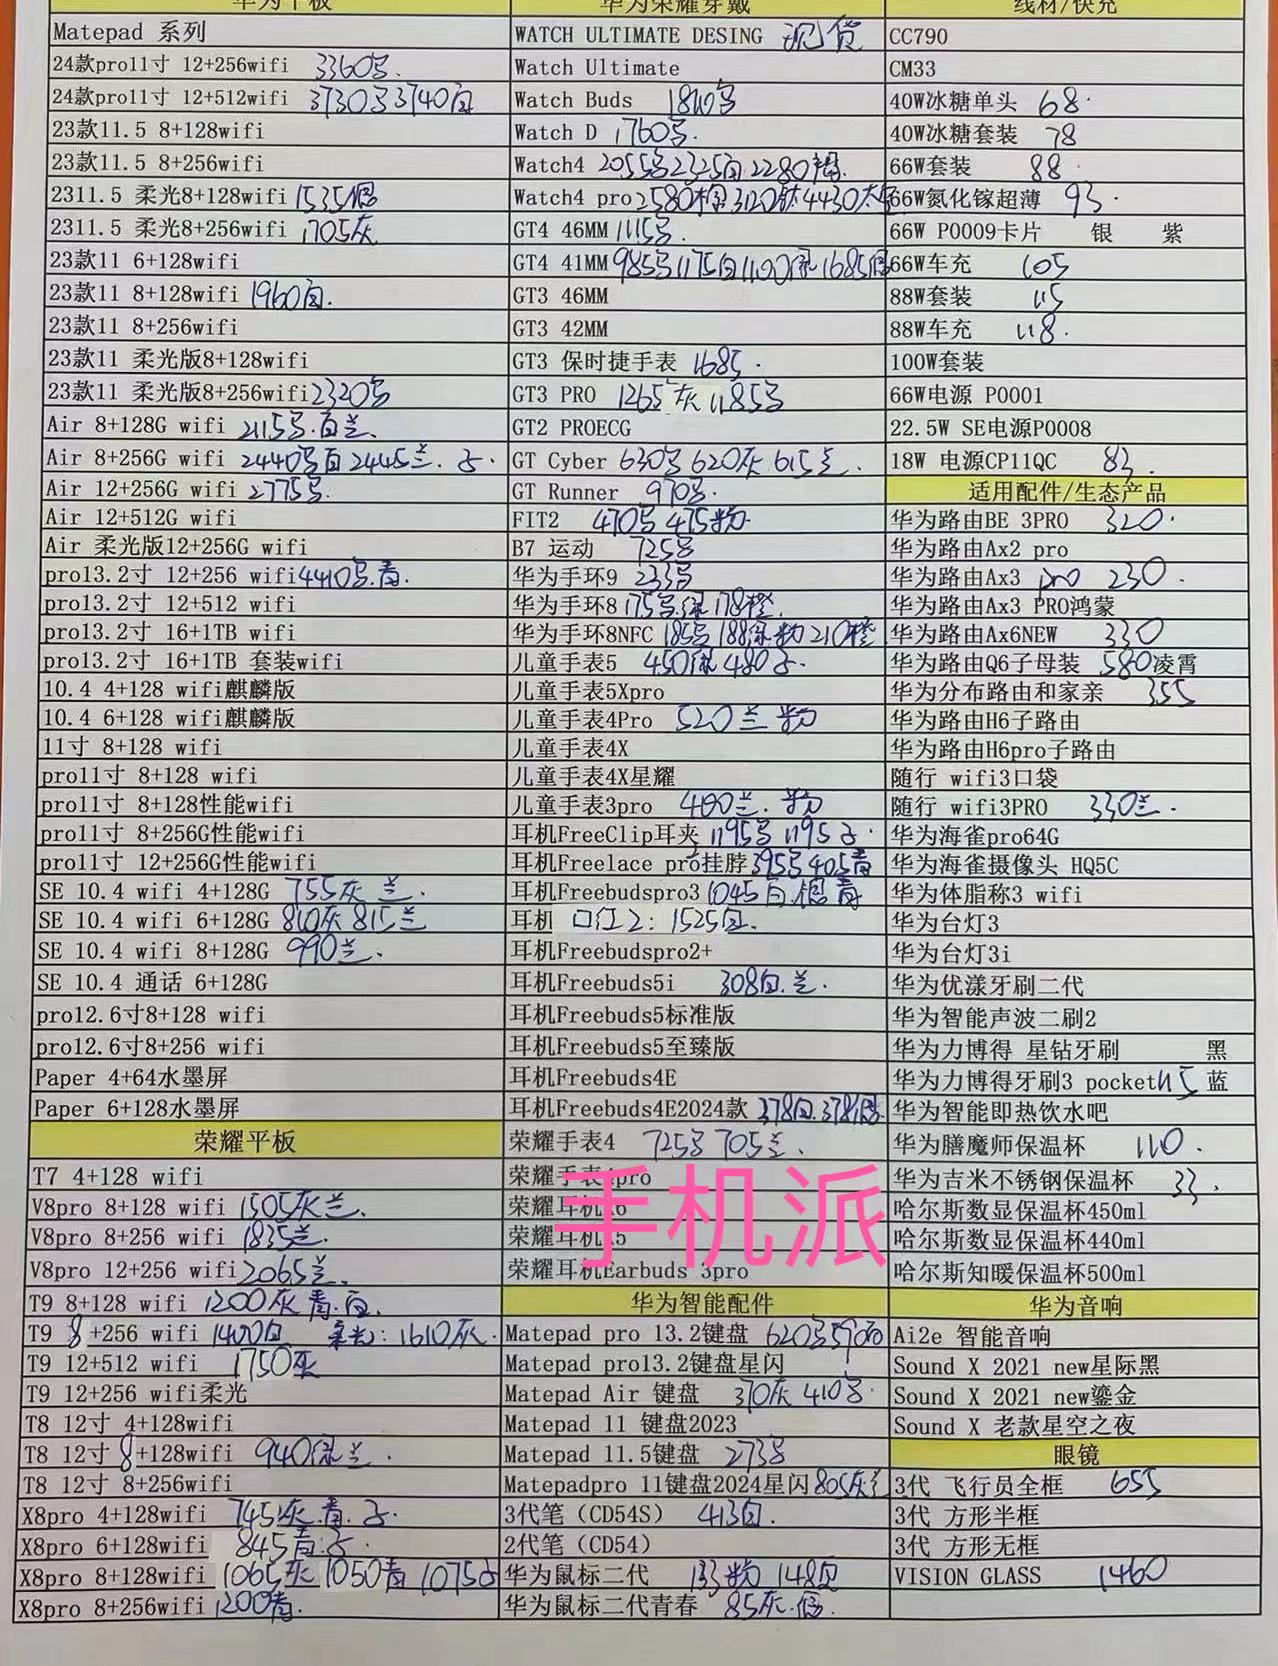 华为平板
Matepad 系列
24款pro11寸 12+256wifi 3360
24款pro11寸 12+512wifi 3730 3740白
23款11.5 8+128wifi
23款11.5 8+256wifi
2311.5 柔光8+128wifi 1535银
2311.5 柔光8+256wifi 1705灰
23款11 6+128wifi
23款11 8+128wifi 1960白.
23款11 8+256wifi
23款11 柔光版8+128wifi
23款11 柔光版8+256wifi 2320
Air 8+128G wifi 2115 白兰.
Air 8+256G wifi 2440 白 2445兰.
Air 12+256G wifi 2775
Air 12+512G wifi
Air 柔光版12+256G wifi
pro13.2寸 12+256 wifi 4410 青.
pro13.2寸 12+512 wifi
pro13.2寸 16+1TB wifi
pro13.2寸 16+1TB 套装wifi
10.4 4+128 wifi麒麟版
10.4 6+128 wifi麒麟版
11寸 8+128 wifi
pro11寸 8+128 wifi
pro11寸 8+128性能wifi
pro11寸 8+256G性能wifi
pro11寸 12+256G性能wifi
SE 10.4 wifi 4+128G 755灰 兰.
SE 10.4 wifi 6+128G 810灰 815兰
SE 10.4 wifi 8+128G 990兰.
SE 10.4 通话 6+128G
pro12.6寸8+128 wifi
pro12.6寸8+256 wifi
Paper 4+64水墨屏
Paper 6+128水墨屏
荣耀平板
T7 4+128 wifi
V8pro 8+128 wifi 1505灰兰.
V8pro 8+256 wifi 1835兰.
V8pro 12+256 wifi 2065兰.
T9 8+128 wifi 1200灰 青.白.
T9 8+256 wifi 1400白 柔光:1610灰.
T9 12+512 wifi 1750灰
T9 12+256 wifi柔光
T8 12寸 4+128wifi
T8 12寸 8+128wifi 940绿兰.
T8 12寸 8+256wifi
X8pro 4+128wifi 745灰.青.
X8pro 6+128wifi 845青.
X8pro 8+128wifi 1065灰 1050青 1075
X8pro 8+256wifi 1200青.
华为荣耀穿戴
WATCH ULTIMATE DESING 现货
Watch Ultimate
Watch Buds 1810
Watch D 1760
Watch4 2055 2325白 2280棕.
Watch4 pro 2580棕 3120钛 4430
GT4 46MM 1115
GT4 41MM 985 1175白 1100绿 1685银
GT3 46MM
GT3 42MM
GT3 保时捷手表 1685.
GT3 PRO 1265灰 1185
GT2 PROECG
GT Cyber 630 620灰 615兰.
GT Runner 970
FIT2 470 475粉.
B7 运动 725
华为手环9 233
华为手环8 175 绿 178橙.
华为手环8NFC 185 188绿 粉 210橙
儿童手表5 450绿 480
儿童手表5Xpro
儿童手表4Pro 520兰 粉
儿童手表4X
儿童手表4X星耀
儿童手表3pro 400兰. 粉
耳机FreeClip耳夹 1195 1195
耳机Freelace pro挂脖 395 405青
耳机Freebudspro3 1045白.银青
耳机 口红2: 1525白.
耳机Freebudspro2+
耳机Freebuds5i 308白.兰.
耳机Freebuds5标准版
耳机Freebuds5至臻版
耳机Freebuds4E
耳机Freebuds4E2024款 378白.378银.
荣耀手表4 725 705兰.
荣耀手表4pro
荣耀耳机 6
荣耀耳机 5
荣耀耳机Earbuds 3pro
手机派
华为智能配件
Matepad pro 13.2键盘 620 590白
Matepad pro13.2键盘星闪
Matepad Air 键盘 370灰 410
Matepad 11 键盘2023
Matepad 11.5键盘 273
Matepadpro 11键盘2024星闪 805灰
3代笔（CD54S） 413白.
2代笔（CD54）
华为鼠标二代 133粉 148
华为鼠标二代青春 85灰.
线材/快充
CC790
CM33
40W冰糖单头 68.
40W冰糖套装 78
66W套装 88.
66W氮化镓超薄 93.
66W P0009卡片 银 紫
66W车充 105
88W套装 115
88W车充 118.
100W套装
66W电源 P0001
22.5W SE电源P0008
18W 电源CP11QC 83.
适用配件/生态产品
华为路由BE 3PRO 320.
华为路由Ax2 pro
华为路由Ax3 pro 230.
华为路由Ax3 PRO鸿蒙
华为路由Ax6NEW 330
华为路由Q6子母装 580凌霄
华为分布路由和家亲 355
华为路由H6子路由
华为路由H6pro子路由
随行 wifi3口袋
随行 wifi3PRO 330兰.
华为海雀pro64G
华为海雀摄像头 HQ5C
华为体脂称3 wifi
华为台灯3
华为台灯3i
华为优漾牙刷二代
华为智能声波二刷2
华为力博得 星钻牙刷 黑
华为力博得牙刷3 pocket 115 蓝
华为智能即热饮水吧
华为膳魔师保温杯 110.
华为吉米不锈钢保温杯 33.
哈尔斯数显保温杯450ml
哈尔斯数显保温杯440ml
哈尔斯知暖保温杯500ml
华为音响
Ai2e 智能音响
Sound X 2021 new星际黑
Sound X 2021 new鎏金
Sound X 老款星空之夜
眼镜
3代 飞行员全框 655
3代 方形半框
3代 方形无框
VISION GLASS 1460